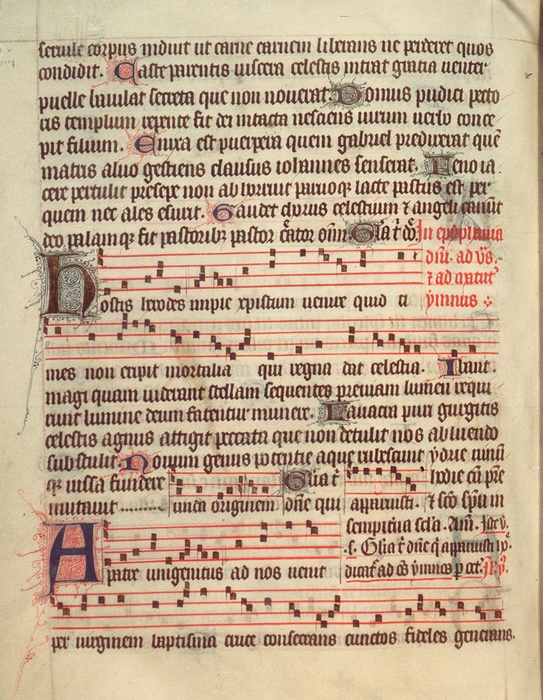 seruile corpus induit ut carne carnem liberans ne perderet quos
condidit. Caste parentis uiscera celestis intrat gracia uenter
puelle baiulat secreta que non nouerat Domus pudici pecto
ris templum repente fit dei intacta nesciens uirum uerbo conce
pit filium. Enixa est puerpera quem gabriel predixerat quē
matris aluo gestiens clausus iohannes senserat. Feno ia
cere pertulit presepe non abhorruit paruoq; lacte pastus est per
quem nec ales esurit. Gaudet chorus celestium & angeli canūt
deo palamq; fit pastoribꝫ pastor c̄ator oīm Gl̄a t̄ dō In epiphania
dn̄i. ad vs̄.
& ad
ympnus
Hostis herodes impie xpistum uenire quid ti
mes non eripit mortalia qui regna dat celestia. Ibant
magi quam uiderant stellam sequentes preuiam lumen requi
runt lumine deum fatentur munere. Lauacra puri gurgitis
celestis agnus attigit peccata que non detulit nos abluendo
substulit Nouum genus potentie aque rubescunt ydrie uinūq;
q; iussa fundere
mutauit
unda originem
Gl̄a t̄
dn̄e qui
apparuisti.
hodie cū pr̄e
& sc̄o sp̄u in
sempiterna sc̄la. Am̄.
Gl̄a t̄ dn̄e q̄ apparuisti
A patre unigenitus ad nos uenit
per uirginem baptisma cruce consecrans cunctos fideles generans.